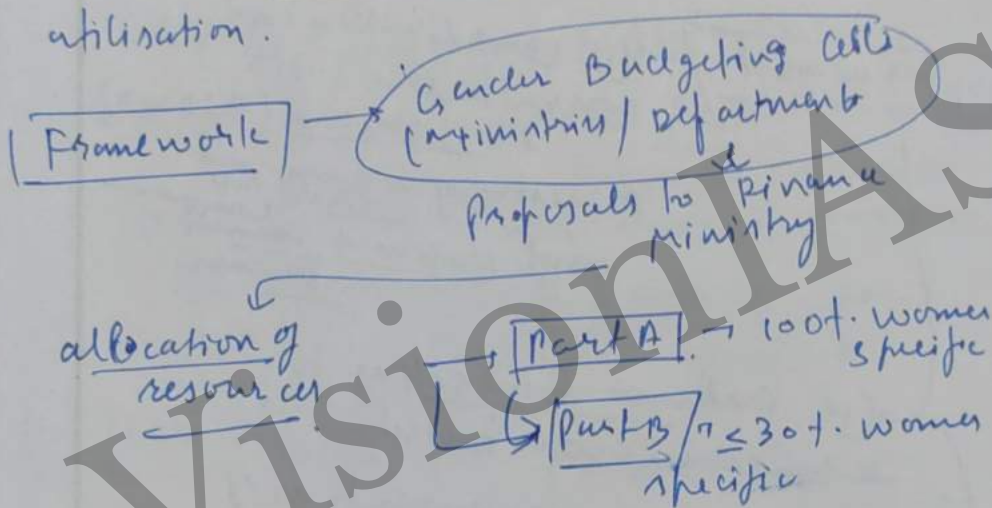 utilisation.
Framework → Gender Budgeting Cells
(Ministries / Departments
Proposals to Finance
Ministry
allocation of
resources
Part A → 100% women
specific
Part B → ≤30% women
specific
VisionIAS